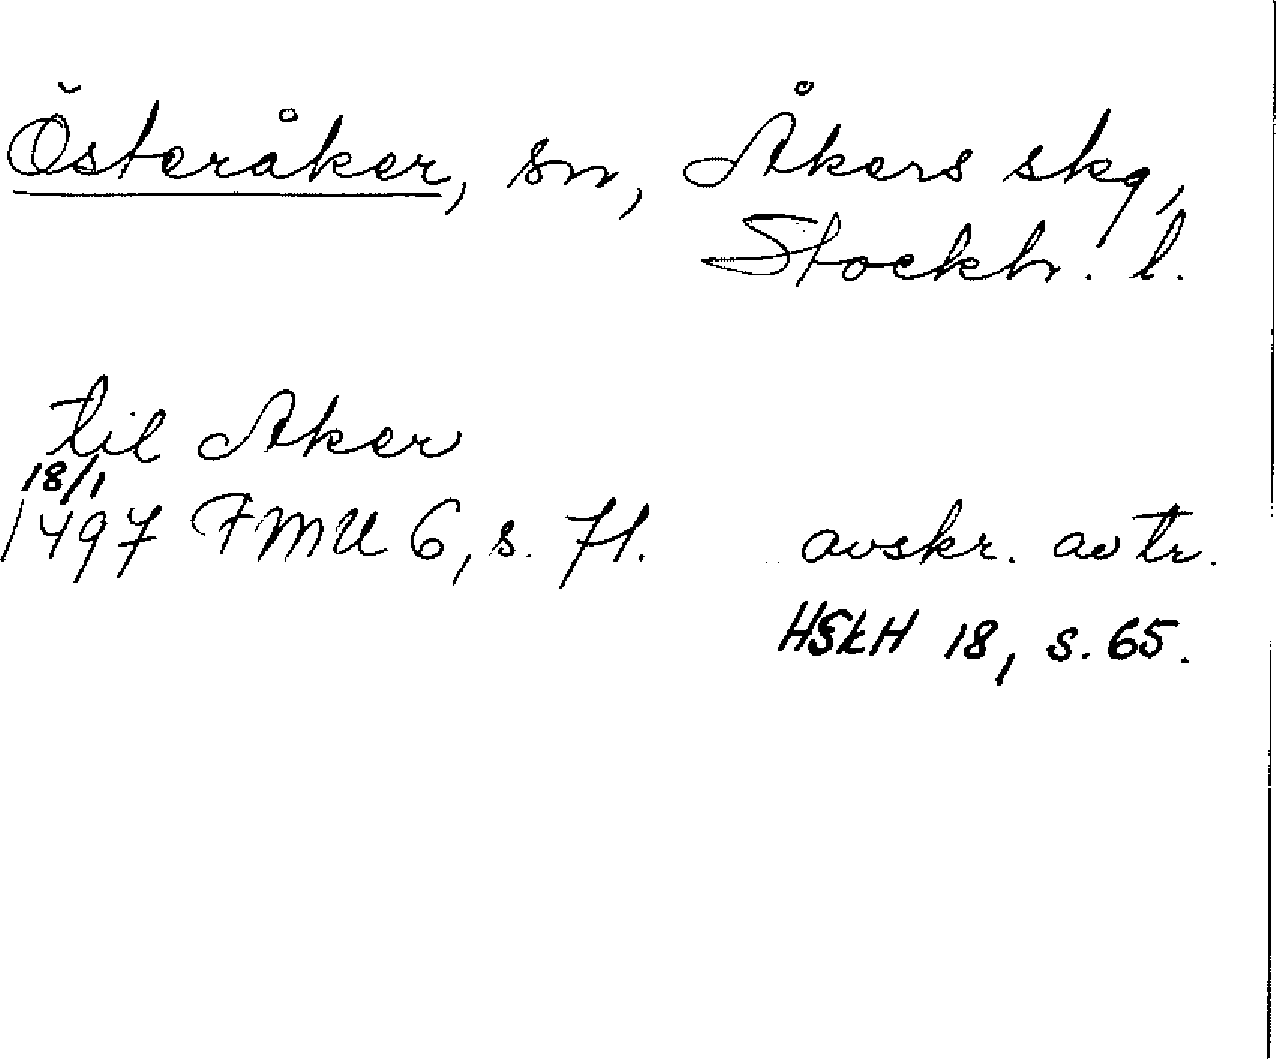 Österåker, sn, Åkers skg,
Stockh. l.
til Aker
18/1
1497 FMU 6, s. 71. avskr. avtr.
HSkH 18, s. 65.